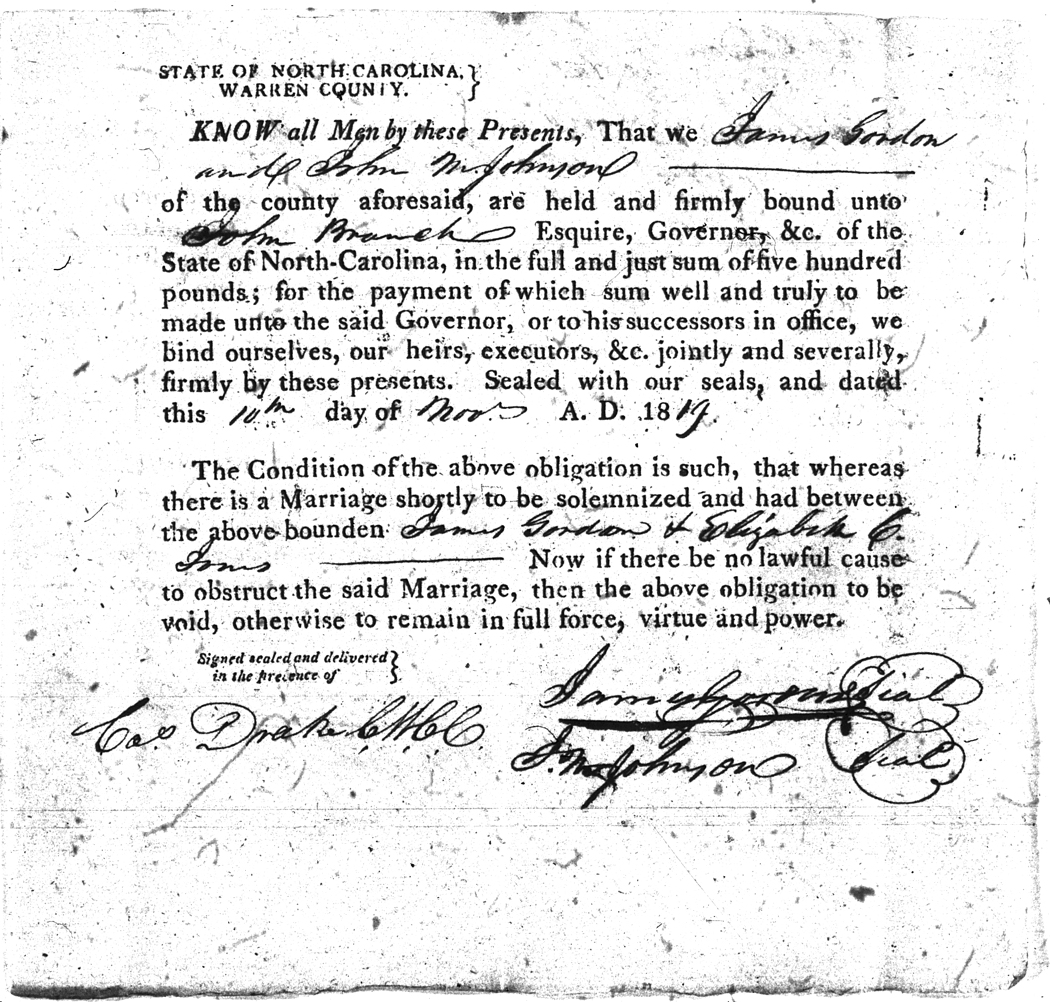 STATE OF NORTH CAROLINA, }
WARREN COUNTY. }
KNOW all Men by these Presents, That we James Gordon
and John M. Johnson
of the county aforesaid, are held and firmly bound unto
John Branch Esquire, Governor, &c. of the
State of North-Carolina, in the full and just sum of five hundred
pounds; for the payment of which sum well and truly to be
made unto the said Governor, or to his successors in office, we
bind ourselves, our heirs, executors, &c. jointly and severally,
firmly by these presents. Sealed with our seals, and dated
this 10th day of Novr. A. D. 1819.
The Condition of the above obligation is such, that whereas
there is a Marriage shortly to be solemnized and had between
the above bounden James Gordon & Elizabeth C.
Jones Now if there be no lawful cause
to obstruct the said Marriage, then the above obligation to be
void, otherwise to remain in full force, virtue and power.
Signed sealed and delivered }
in the presence of }
James Gordon Seal
Cas Drake C.W.C.C.
J. M. Johnson Seal